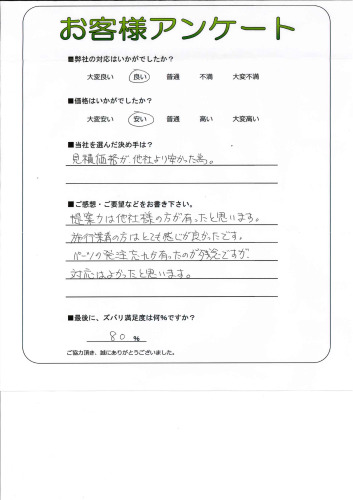 お客様アンケート
■弊社の対応はいかがでしたか?
大変良い 良い 普通 不満 大変不満
■価格はいかがでしたか?
大変安い 安い 普通 高い 大変高い
■当社を選んだ決め手は?
見積価格が、他社より安かった為。
■ご感想・ご要望などをお書き下さい。
提案力は他社様の方が有ったと思います。
施行業者の方はとても感じが良かったです。
パーツの発注忘れが有ったのが残念ですが、
対応はよかったと思います。
■最後に、ズバリ満足度は何%ですか?
80 %
ご協力頂き、誠にありがとうございました。